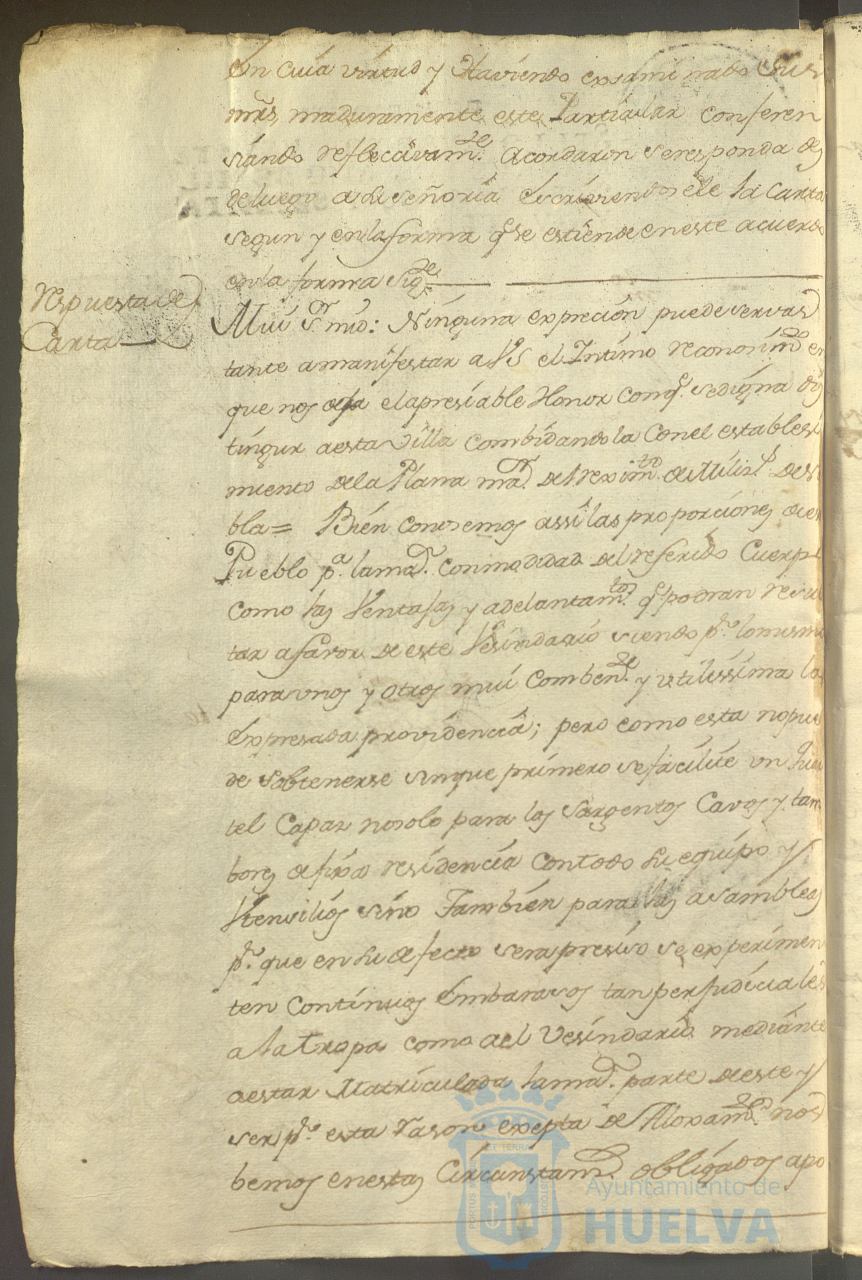 En cuía virtud y Haviendo exsaminado Sus
mrs maduramente este Particular conferen
siando refleccivamte. Acordaron se responda des
de luego a su señoria escriviendosele la carta
segun y en la forma qe. se estiende en este acuerdo
en la forma sigte.
Respuesta de
Carta
Mui Sr. mio: Ninguna expreción puede ser vas
tante a manifestar a VS el Intimo reconosimto en
que nos deja el apresiable Honor con qe. se digna dis
tinguir a esta Villa combidandola con el establesi
miento de la Plana mr. del reximto. de Milis. de Se
bla= Bién conosemos assi las proporciónes de es
Pueblo pa. la mr. conmodidad del referido Cuerpo
como las Ventajas y adelantamtos. qe. podran resul
tar a favor de este Vesindario siendo pr. lo mismo
para unos y otros mui combente. y utilissima la
Expresada providencia; pero como esta no pue
de obtenerse sin que primero se facilite un Quar
tel Capaz no solo para los Sargentos Cavos y tam
bores de fixa residencia con todo su equipo y
Utensilios sino También para las asambleas
pr. que en su defecto sera presiso se experimen
ten Continuos Embarasos tan perjudiciales
a la tropa como a el Vesindario mediante
a estar Matriculada la mr. parte de este y
ser pr. esta rason exepta de Aloxamte. nos
bemos en estas Circunstans. obligados a po
Ayuntamiento de
HUELVA